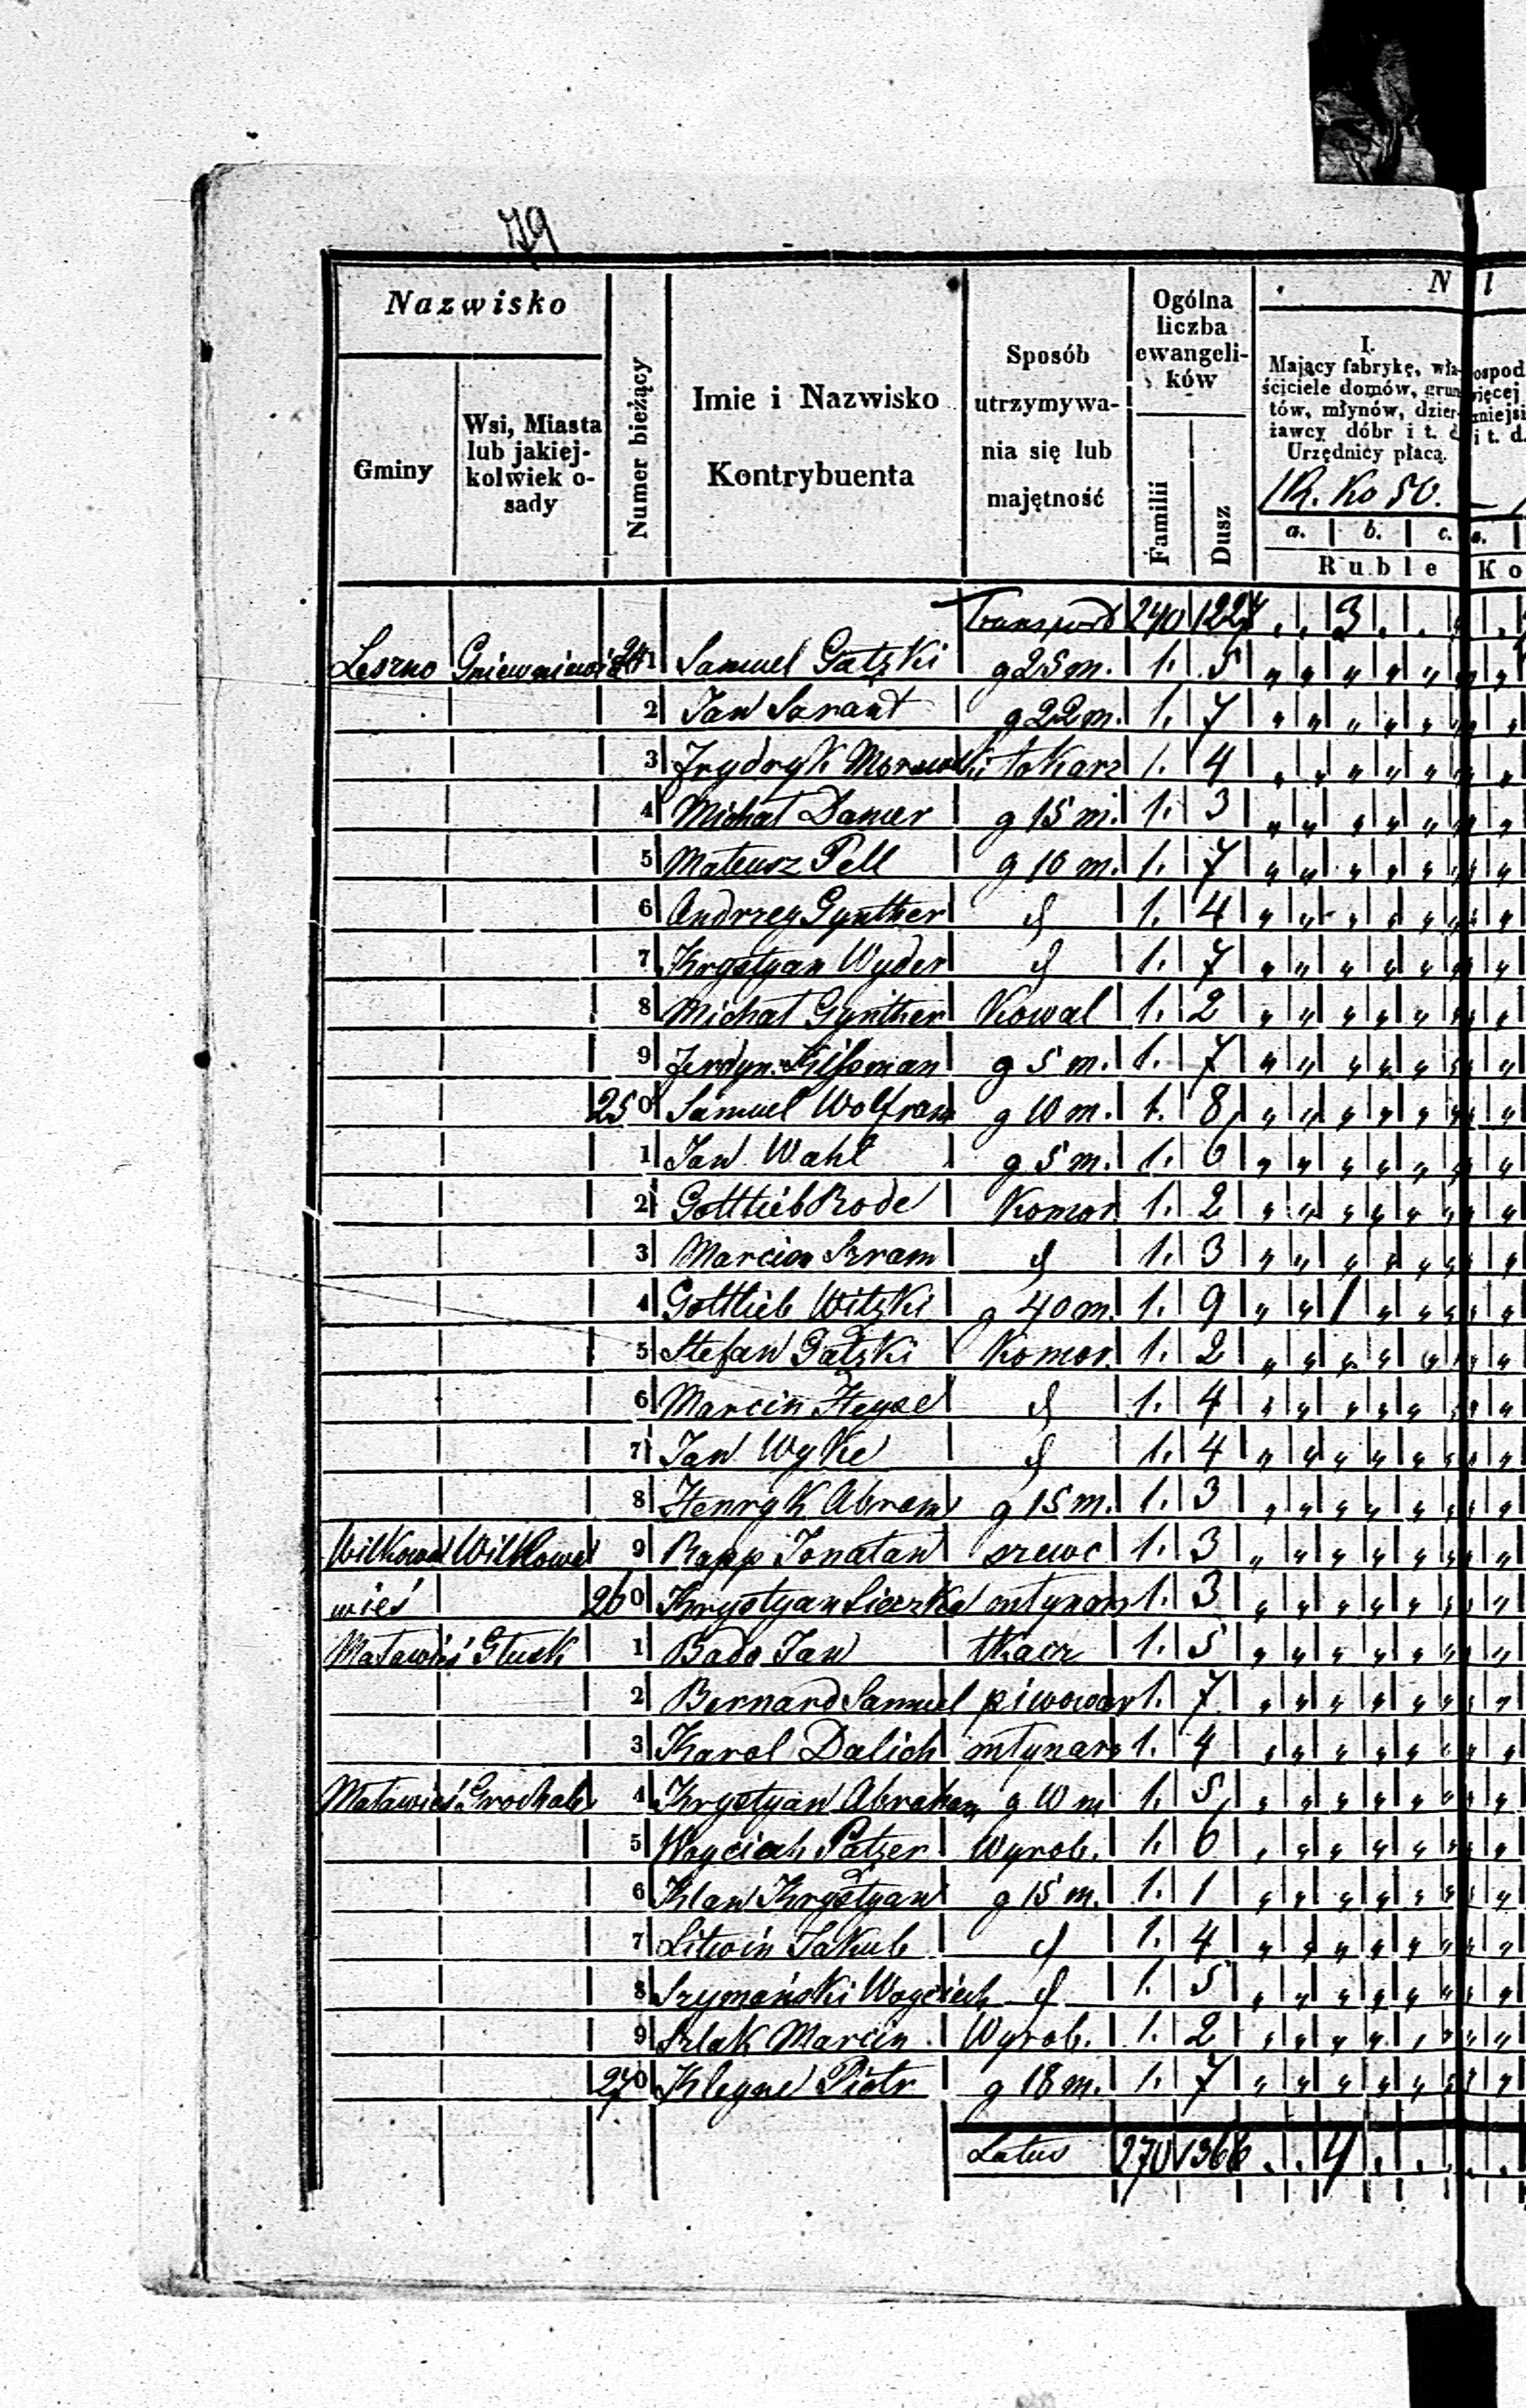 79
Nazwisko
Gminy
Wsi, Miasta
lub jakiej-
kolwiek o-
sady
Numer bieżący
Imie i Nazwisko
Kontrybuenta
Sposób
utrzymywa-
nia się lub
majętność
Ogólna
liczba
ewangeli-
ków
Familii
Dusz
N
I.
Mający fabrykę, wła-
ściciele domów, grun
tów, młynów, dzier-
żawcy dóbr i t. d
Urzędnicy płacą.
1R. Ko 50.
a. b. c. a.
Ruble Ko
Transport 240 1227 3
Leszno 241 Samuel Gatzki g 25 m. 1. 5
2 Jan Sarant g 22 m. 1. 7
3 Frydryk tokarz 1. 4
4 Michał Damer g 15 m. 1. 3
5 Mateusz Pell g 10 m. 1. 7
6 Andrzey Gynther d 1. 4
7 Krystyan Wyder d 1. 7
8 Michał Gynther Kowal 1. 2
9 Ferdyn. g 5 m. 1. 7
250 Samuel Wolfram g 10 m. 1. 8
1 Jan Wahl g 5 m. 1. 6
2 Gottlieb Rode Komor. 1. 2
3 Marcin Szram d 1. 3
4 Gottlieb Witzki g 40 m. 1. 9 1
5 Stefan Gatzki Komor. 1. 2
6 Marcin d 1. 4
7 Jan Wyke d 1. 4
8 Henryk Abram g 15 m. 1. 3
Wilkowa Wilkowa 9 Rapp Jonatan szewc 1. 3
wieś 260 Krystyan młynarz 1. 3
Maławieś Głusk 1 Bado Jan tkacz 1. 5
2 Bernard Samuel piwowar 1. 7
3 Karol Dalich młynarz 1. 4
Maławieś Grochale 4 Krystyan Abraham g 10 m 1. 5
5 Woyciech Patzer Wyrob. 1. 6
6 Klan Krystyan g 15 m. 1. 1
7 Litwin Jakub d 1. 4
8 Szymański Woyciech d 1. 5
9 Szlak Marcin Wyrob. 1. 2
270 Kleyne Piotr g 18 m. 1. 7
Latus 270 1366 4